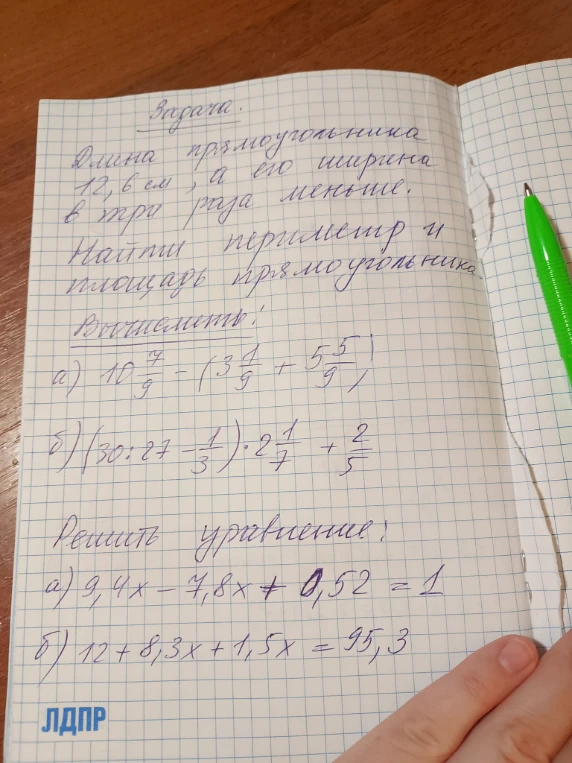 Задача.
Длина прямоугольника
12,6 см, а его ширина
в три раза меньше.
Найти периметр и
площадь прямоугольника
Вычислить:
а) 10 7/9 - (3 1/9 + 5 5/9)
б) (30:27 - 1/3) · 2 1/7 + 2/5
Решить уравнение:
а) 9,4x - 7,8x + 0,52 = 1
б) 12 + 8,3x + 1,5x = 95,3
ЛДПР